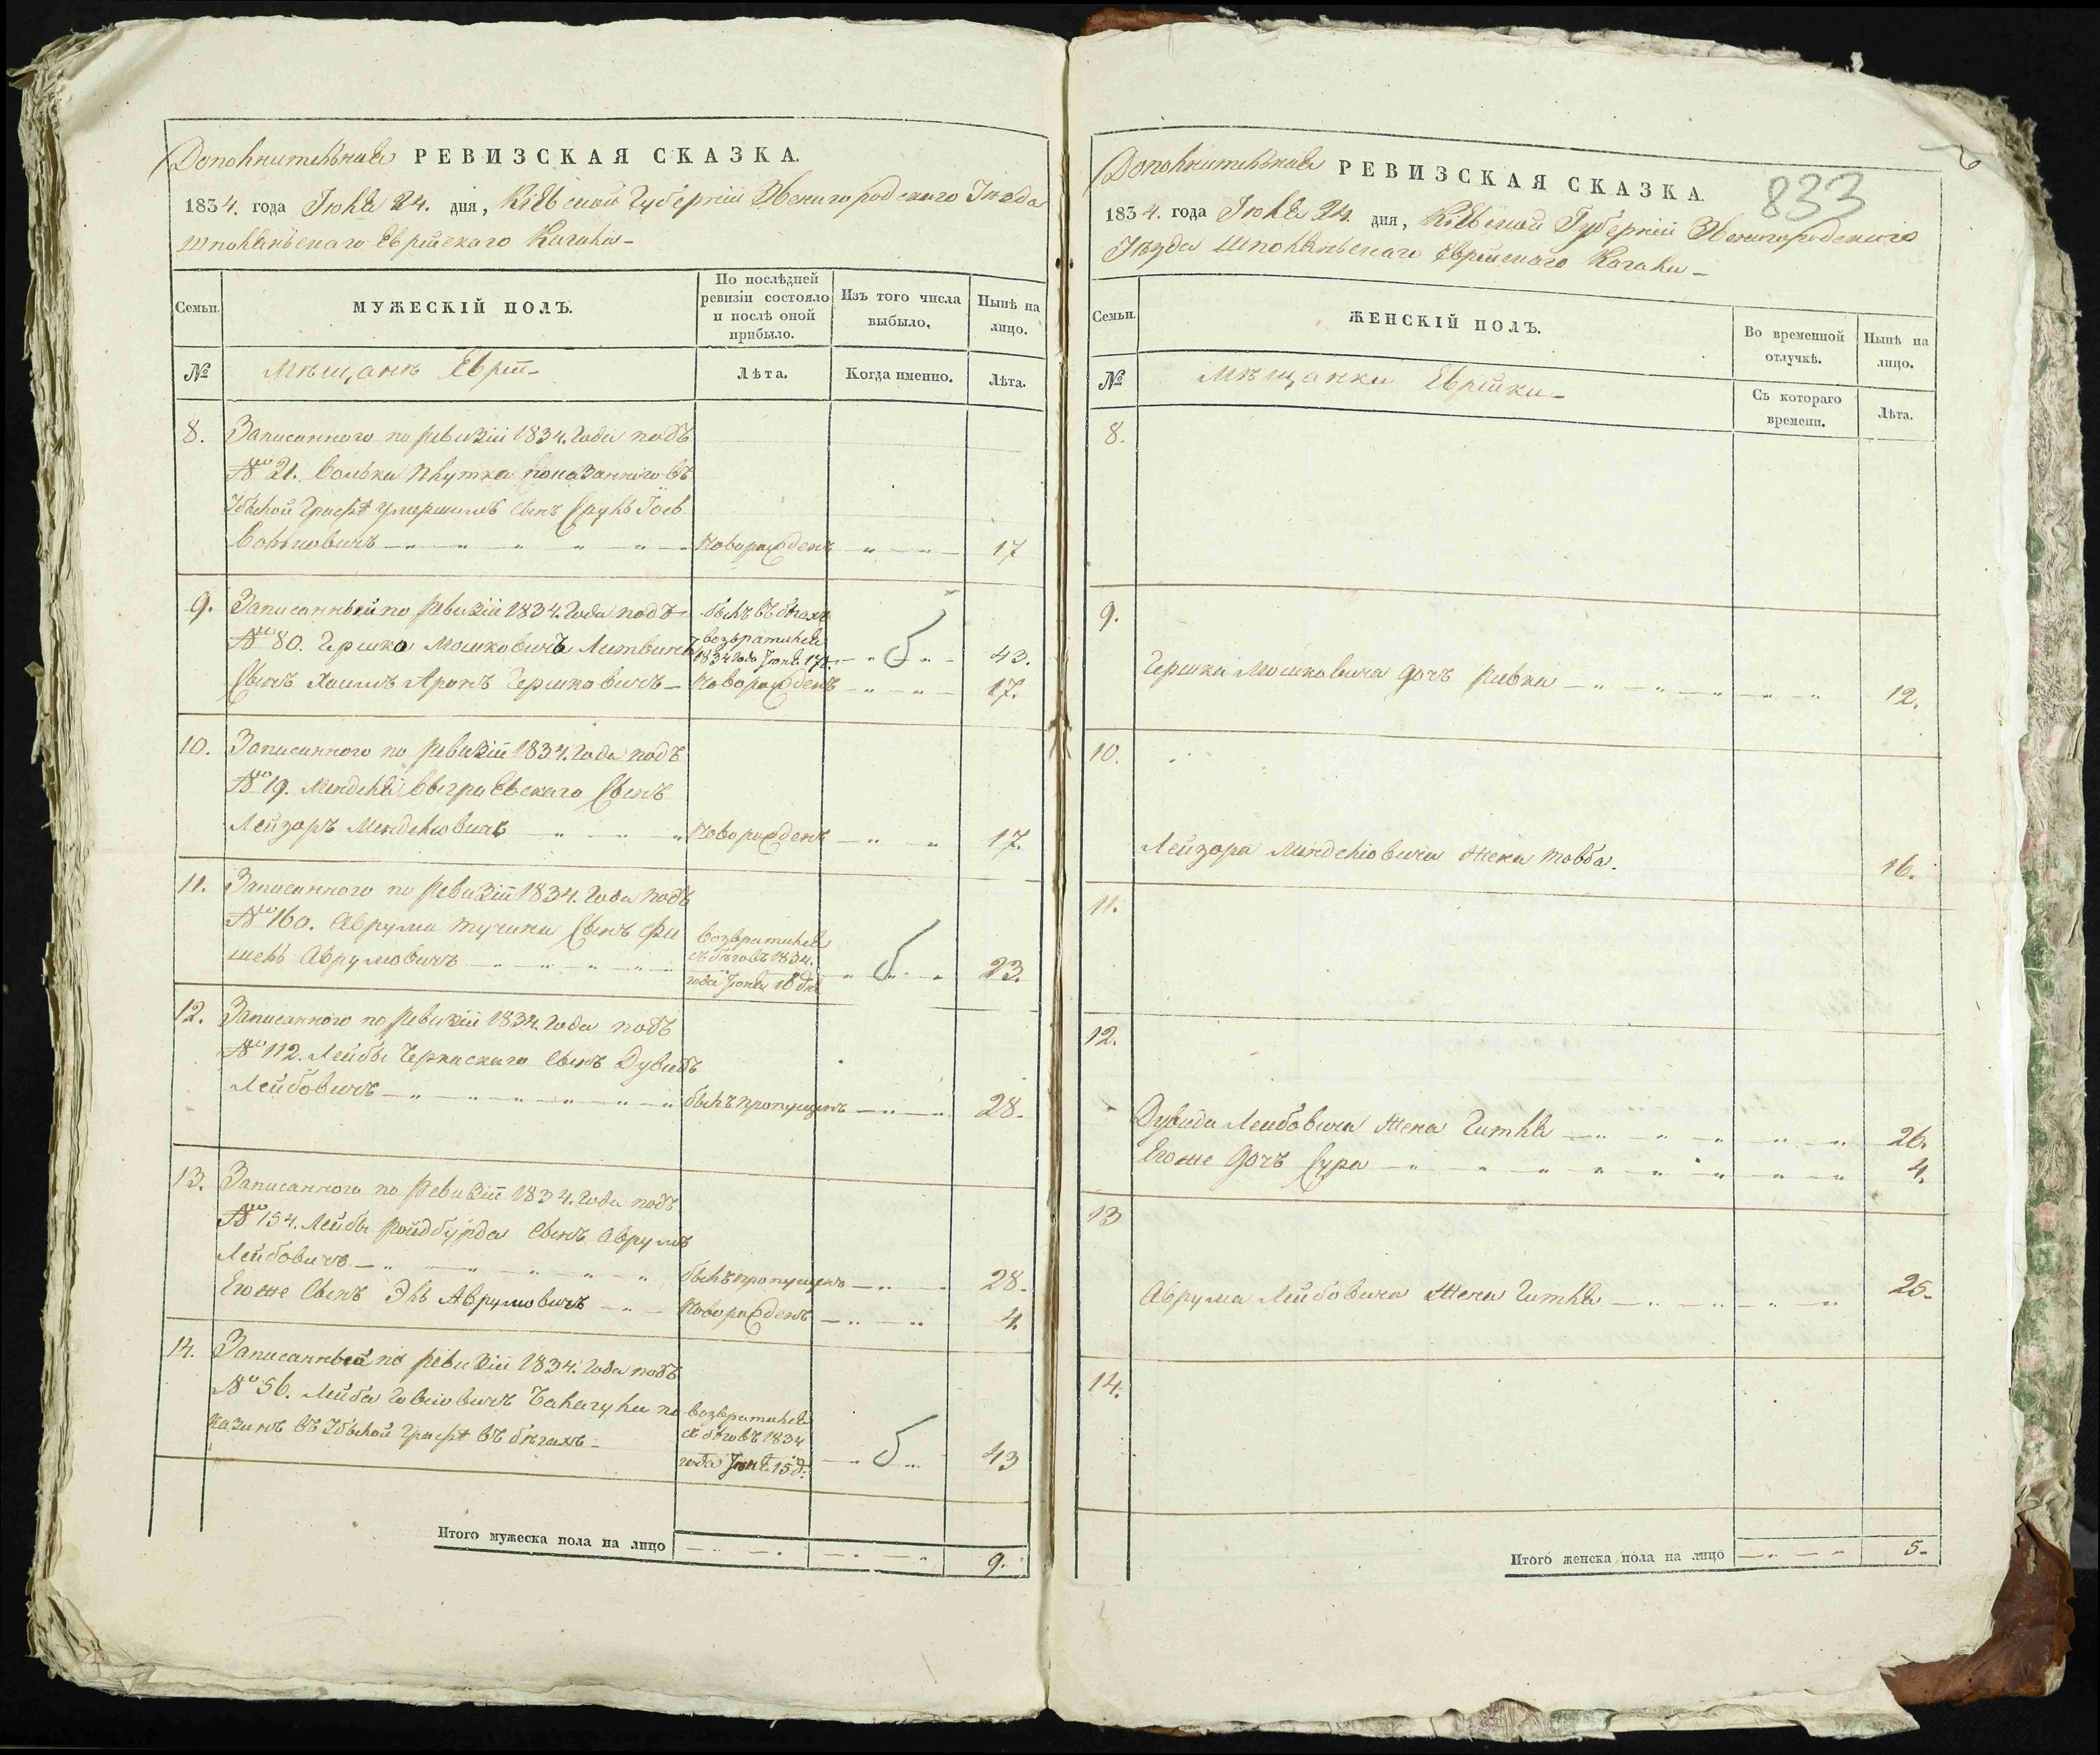 Дополнительная РЕВИЗСКАЯ СКАЗКА.
1834. года Іюля 24. дня, Кіевской Губерніи Звенигородскаго Уѣзда
Шполянскаго Еврейскаго Кагала
Семьи.
МУЖЕСКІЙ ПОЛЪ.
По послѣдней ревизіи состояло и послѣ оной прибыло.
Изъ того числа выбыло.
Нынѣ на лицо.
№
Мѣщанъ Еврей
Лѣта.
Когда именно.
Лѣта.
8. Записанного по ревизіи 1834. года подъ
№ 21. показанного въ
Сынъ Сруль
Новорожденъ 17
9. Записанный по ревизіи 1834. года подъ былъ въ бѣгахъ
№ 80. Гершко Мошковичъ возвратился
1834 года 43.
Сынъ Хаимъ Аронъ Гершковичъ Новорожденъ 17.
10. Записанного по ревизіи 1834. года подъ
№ 19. Менделя Сынъ
Лейзоръ Менделіовичъ Новорожденъ 17.
11. Записанного по ревизіи 1834. года подъ
№ 160. Аврума Сынъ Фи возвратился
шель Аврумовичъ съ бѣговъ 1834.
года 23.
12. Записанного по ревизіи 1834. года подъ
№ 112. Лейбы Черкаскаго Сынъ Дувидъ
Лейбовичъ былъ пропущенъ 28.
13. Записанного по ревизіи 1834. года подъ
№ 154. Лейбы Ройдбурда Сынъ Аврумъ
Лейбовичъ былъ пропущенъ 28.
Его же Сынъ Эль Аврумовичъ Новорожденъ 4.
14. Записанный по ревизіи 1834. года подъ
№ 56. Лейба по возвратился
казанъ въ въ бѣгахъ съ бѣговъ 1834
года 43
Итого мужеска пола на лицо 9.
Дополнительная РЕВИЗСКАЯ СКАЗКА.
833
1834. года Іюля 24. дня, Кіевской Губерніи Звенигородскаго
Уѣзда Шполянскаго Еврейскаго Кагала
Семьи.
ЖЕНСКІЙ ПОЛЪ.
Во временной отлучкѣ.
Нынѣ на лицо.
№
Мѣщанки Еврейки
Съ котораго времени.
Лѣта.
8.
9.
Гершка Мошковича дочь Ривка 12.
10.
Лейзора Менделіовича жена Товба. 16.
11.
12.
Дувида Лейбовича жена Гитля 26.
Его же дочь Сура 4.
13
Аврума Лейбовича жена Гитля 25.
14.
Итого женска пола на лицо 5.